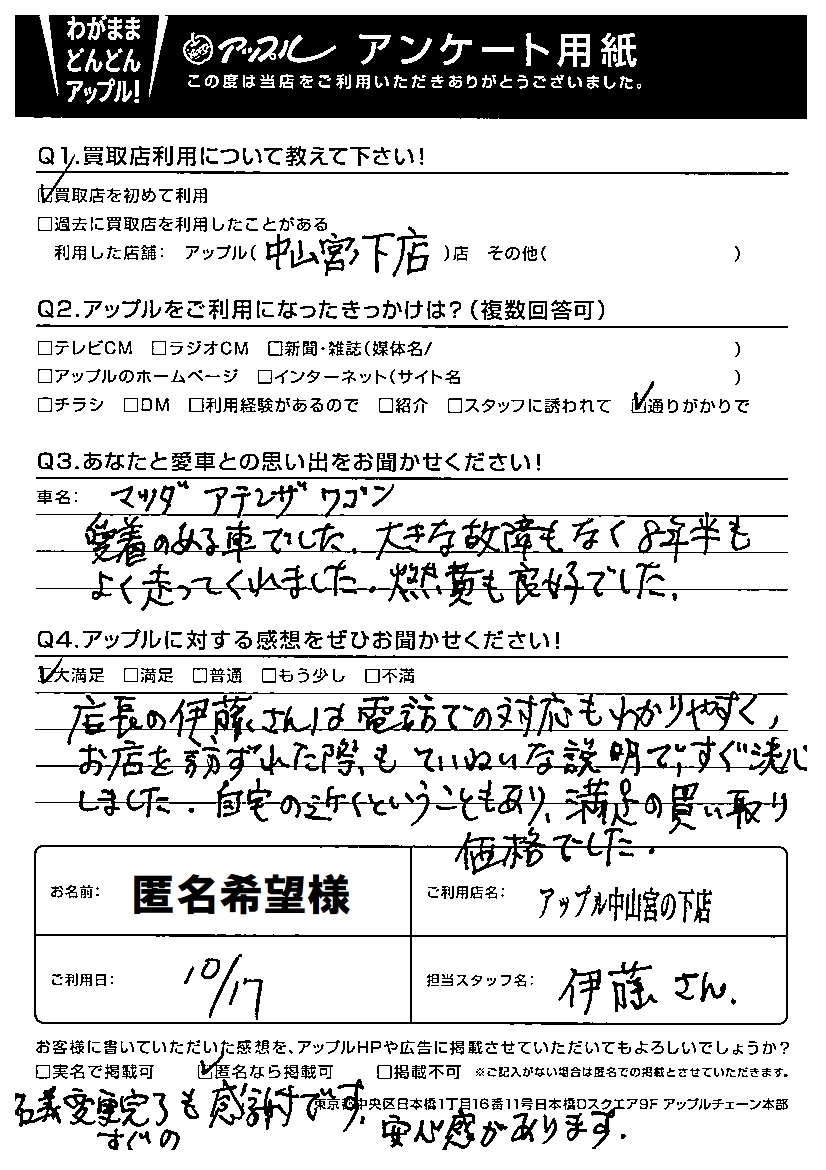 わがまま
どんどん
アップル!
アップル アンケート用紙
この度は当店をご利用いただきありがとうございました。
Q1.買取店利用について教えて下さい!
☑買取店を初めて利用
□過去に買取店を利用したことがある
利用した店舗: アップル(中山宮ノ下店)店 その他( )
Q2.アップルをご利用になったきっかけは?(複数回答可)
□テレビCM □ラジオCM □新聞・雑誌(媒体名/ )
□アップルのホームページ □インターネット(サイト名 )
□チラシ □DM □利用経験があるので □紹介 □スタッフに誘われて ☑通りがかりで
Q3.あなたと愛車との思い出をお聞かせください!
車名: マツダ アテンザ ワゴン
愛着のある車でした。大きな故障もなく8年半も
よく走ってくれました。燃費も良好でした。
Q4.アップルに対する感想をぜひお聞かせください!
☑大満足 □満足 □普通 □もう少し □不満
店長の伊藤さんは電話での対応もわかりやすく、
お店を訪ずれた際もていねいな説明で、すぐ決心
しました。自宅の近くということもあり、満足の買い取り
価格でした。
お名前: 匿名希望様
ご利用店名: アップル中山宮の下店
ご利用日: 10/17
担当スタッフ名: 伊藤さん.
お客様に書いていただいた感想を、アップルHPや広告に掲載させていただいてもよろしいでしょうか?
□実名で掲載可 ☑匿名なら掲載可 □掲載不可 ※ご記入がない場合は匿名での掲載とさせていただきます。
東京都中央区日本橋1丁目16番11号日本橋Dスクエア9F アップルチェーン本部
名義変更完了も感謝です。
すぐの
安心感があります。